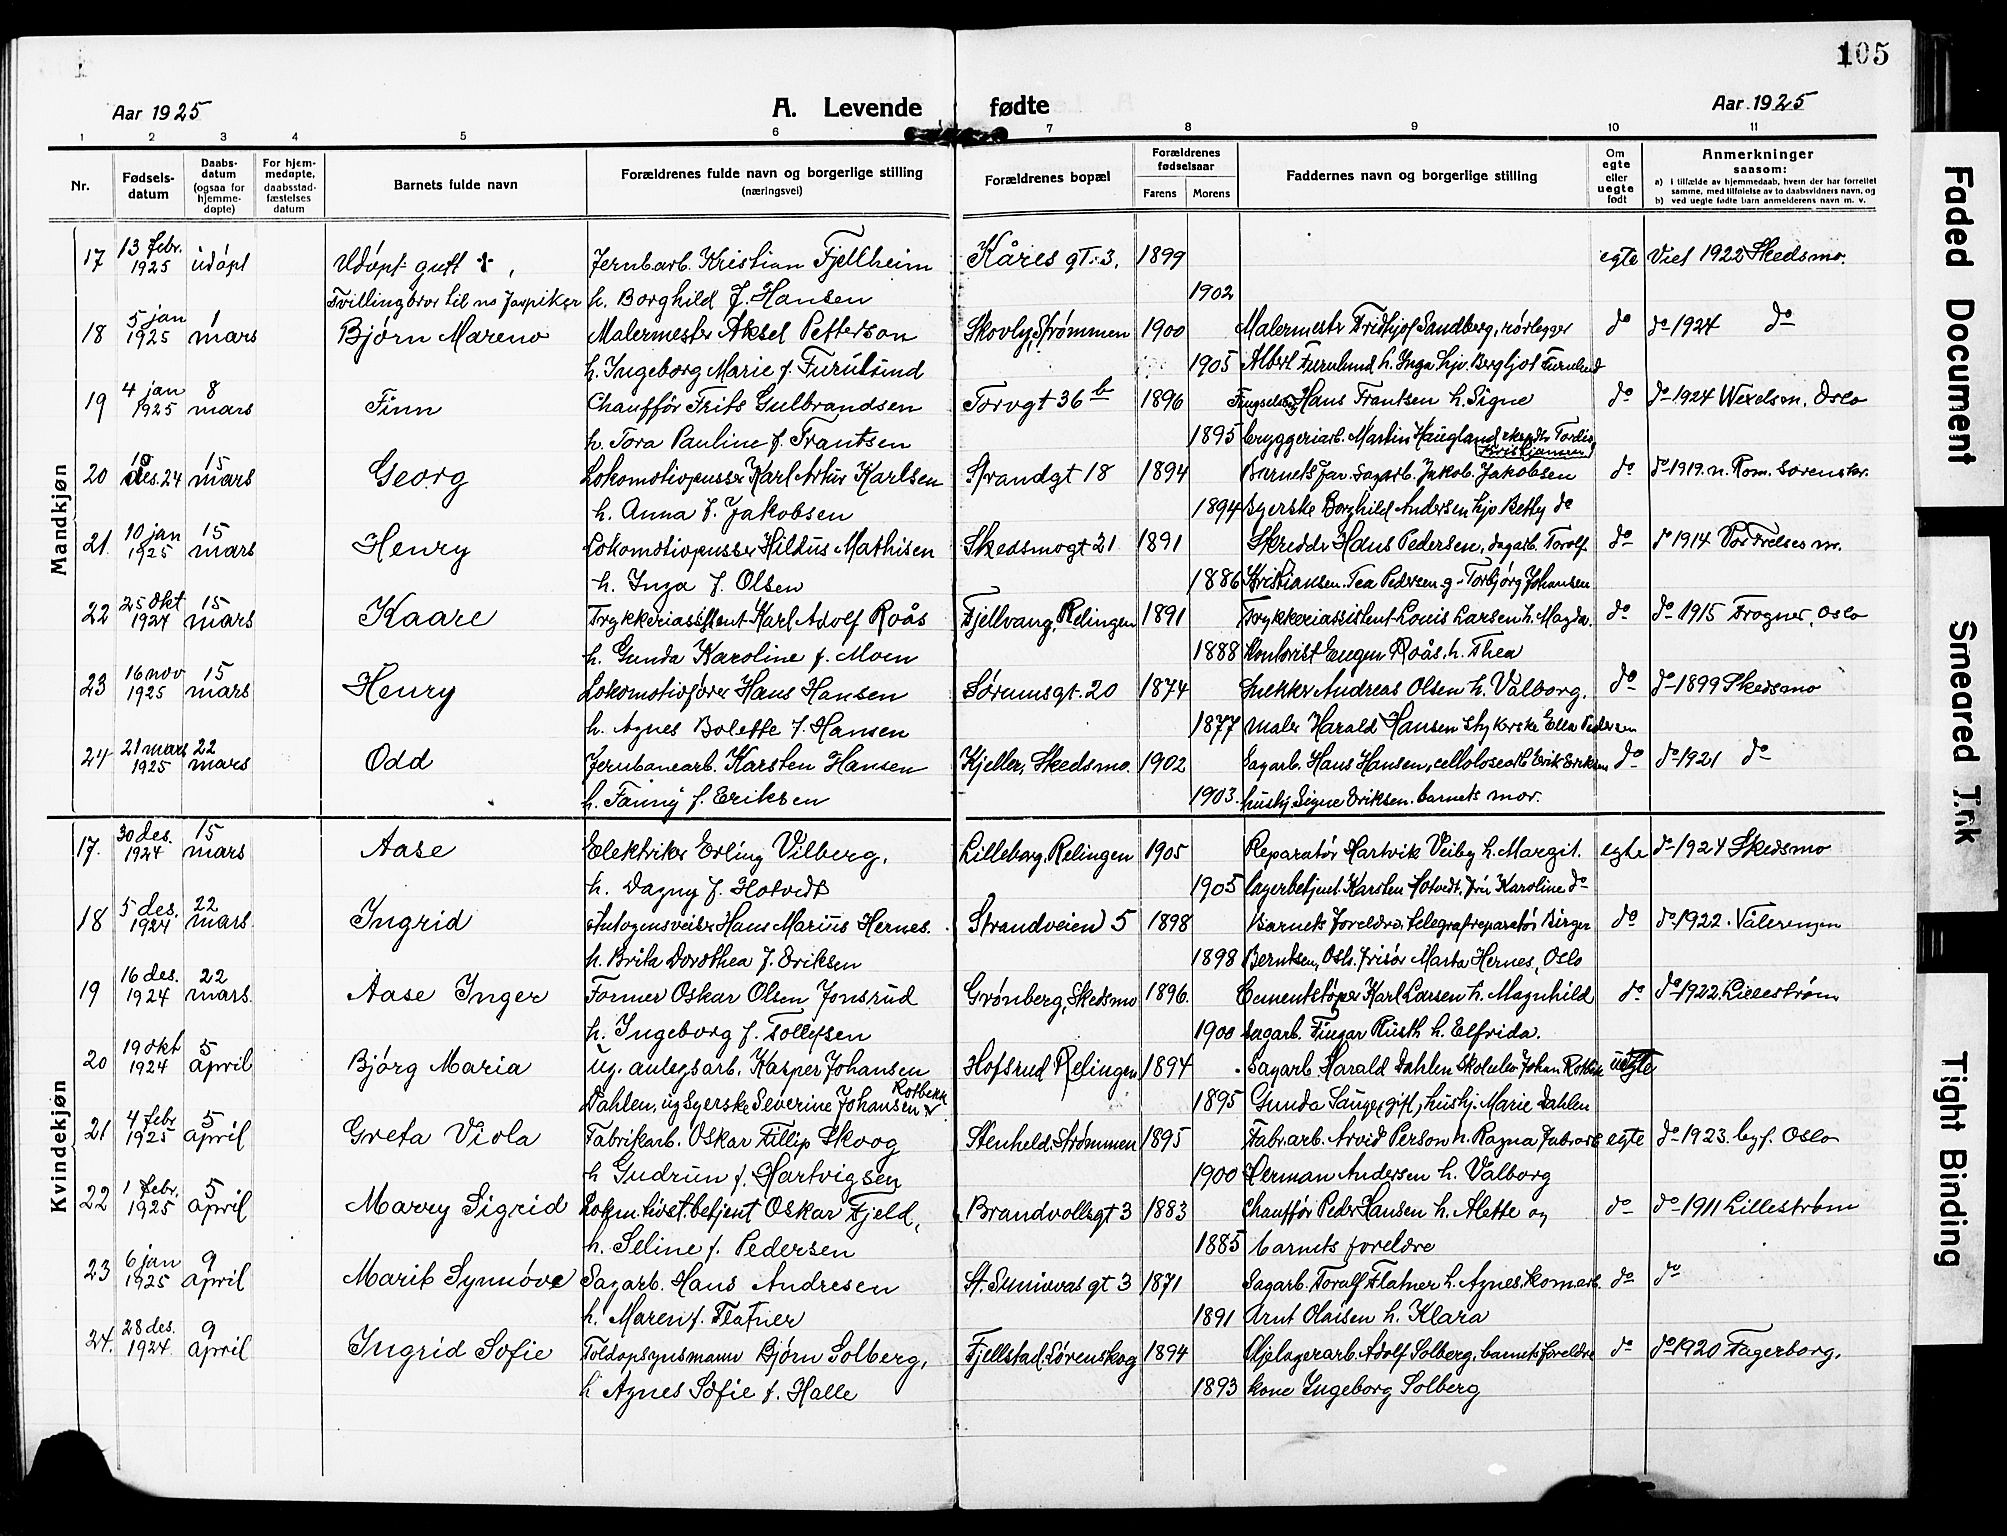 105
Aar 1925
A. Levende fødte
Aar 1925
1 2 3 4 5 6 7 8 9 10 11
Nr.
Fødsels-
datum
Daabs-
datum
(ogsaa for
hjemme-
døpte)
For hjem-
medøpte,
daabsstad-
fæstelses
datum
Barnets fulde navn
Forældrenes fulde navn og borgerlige stilling
(næringsvei)
Forældrenes bopæl
Forældrenes
fødselsaar
Farens Morens
Faddernes navn og borgerlige stilling
Om
egte
eller
uegte
født
Anmerkninger
saasom:
a) i tilfælde av hjemmedaab, hvem der har forrettet
samme, med tilføielse av to daabsvidners navn, og
b) ved uegte fødte barn anmelderens navn m. v.
Mandkjøn
17 13 febr. 1925 udøpt Udøpt gutt ✝, Jernbarb. Kristian Fjellheim Kåres gt. 3. 1899 egte Viet 1922 Skedsmo.
Tvillingbror til no h. Borghild f. Hansen 1902
18 5 jan 1925 1 mars Bjørn Mareno Malermester Aksel Petterson Skovly, Strømmen 1900 Malermestr Fridthjof Sandberg, rørlegger do do 1924 do
h. Ingeborg Marie f. Furulund 1905 Albert Furulund h. Inga hjv. Bergljot Furulund
19 4 jan 1925 8 mars Finn Chauffør Frits Gulbrandsen Torvgt 36 b 1896 Hans Frantsen h. Signe do do 1924 Wexelsm. Oslo
h. Tora Pauline f. Frantsen 1895 bryggeriarb. Martin Haugland Tordis Kristiansen
20 10 des. 24 15 mars Georg Lokomotivpusser Karl Artur Karlsen Strandgt 18 1894 Barnets far. Sagarb. Jakob Jakobsen do do 1919. n. Rom. Sørenskr.
h. Anna f. Jakobsen 1894 Syerske Borghild Andersen hjv Betly do
21. 10 jan 1925 15 mars Henry Lokomotivpusser Hildus Mathisen Skedsmogt 21 1891 Skreddr Hans Pedersen, sagarb. Torolf do do 1914 Vor Frelses m.
h. Inga f. Olsen 1886 Kristiansen. Tea Pedersen g. Torbjørg Johansen
22 25 Okt 1924 15 mars Kaare Trykkeriassistent Karl Adolf Roås Fjellvang, Relingen 1891 Trykkeriassistent Louis Larsen h. Magda. do do 1915 Frogner, Oslo
h. Gunda Karoline f. Moen 1888 Kontorist Eugen Roås. h. Thea
23 16 nov 1925 15 mars Henry Lokomotivfører Hans Hansen Sørumsgt. 20 1874 Snekker Andreas Olsen h. Valborg. do do 1899 Skedsmo
h. Agnes Bolette f. Hansen 1877 maler Harald Hansen strykerske Ella Pedersen
24 21 mars 1925 22 mars Odd Jernbanearb. Karsten Hansen Kjeller, Skedsmo. 1902 Sagarb. Hans Hansen, cellolosearb Erik Eriksen do do 1921 do
h. Fanny f. Eriksen 1903. hushj. Signe Eriksen. barnets mor.
Kvindekjøn
17. 30 des. 1924 15 mars Aase Elektriker Erling Vilberg. Lilleborg, Relingen 1905 Reparatør Hartvik Veiby h. Margit. egte do 1924 Skedsmo
h. Dagny f. Hotvedt 1905 lagerbetjent Karsten Hotvedt. fru Karoline do
18 5 des. 1924 22 mars. Ingrid Autogensveiser Hans Marius Hernes. Strandveien 5 1898 Barnets foreldre. telegrafreparatør Birger do do 1922. Vålerengen
h. Brita Dorothea f. Eriksen 1898 Berntsen, Oslo. frisør Marta Hernes, Oslo
19 16 des. 1924 22 mars. Aase Inger Former Oskar Olsen Jonsrud Grønberg, Skedsmo 1896 Cementstøper Karl Larsen h. Magnhild do do 1922. Lillestrøm
h. Ingeborg f. Tollefsen 1900 Sagarb. Fingar Rusth h. Elfrida.
20 19 okt 1924 5 april Bjørg Maria Ug. anlegsarb. Kasper Johansen Hofsrud Relingen 1894 Sagarb. Harald Dahlen Skoleelev Johan uegte
Dahlen, ug Syerske Severine Johansen Rotbekk 1895 Gunda Sauger, gift, hushj. Marie Dahlen
21 4 febr 1925 5 april Greta Viola Fabrikarb. Oskar Fillip Skoog Stenheld. Strømmen 1895 Fabr. arb. Arvid Person h. Ragna fabrarb egte do 1923. byf. Oslo
h Gudrun f. Hartvigsen 1900 Herman Andersen h. Valborg
22 1 febr. 1925 5 april Marry Sigrid Lokm. tivst. betjent Oskar Fjeld, Brandvollsgt 3 1883 Chauffør Peder Hansen h. Alette og do do 1911 Lillestrøm
h. Seline f. Pedersen 1885 barnets foreldre
23 6 jan 1925 9 april Marit Synnøve Sagarb. Hans Andresen St. Sunivas gt 3 1871 Sagarb. Torulf Flatner h. Agnes. Komarb. do do
h. Maren f. Flatner 1891 Arnt Olaisen h. Klara
24. 28 des. 1924. 9 april Ingrid Sofie Toldopsynsmann Bjørn Solberg, Fjellstad, Lørenskog 1894 Oljelagerarb. Adolf Solberg. barnets foreldre do do 1920 Fagerborg.
h Agnes Sofie f. Halle 1893 kone Ingeborg Solberg
Faded Document
Smeared Ink
Tight Binding